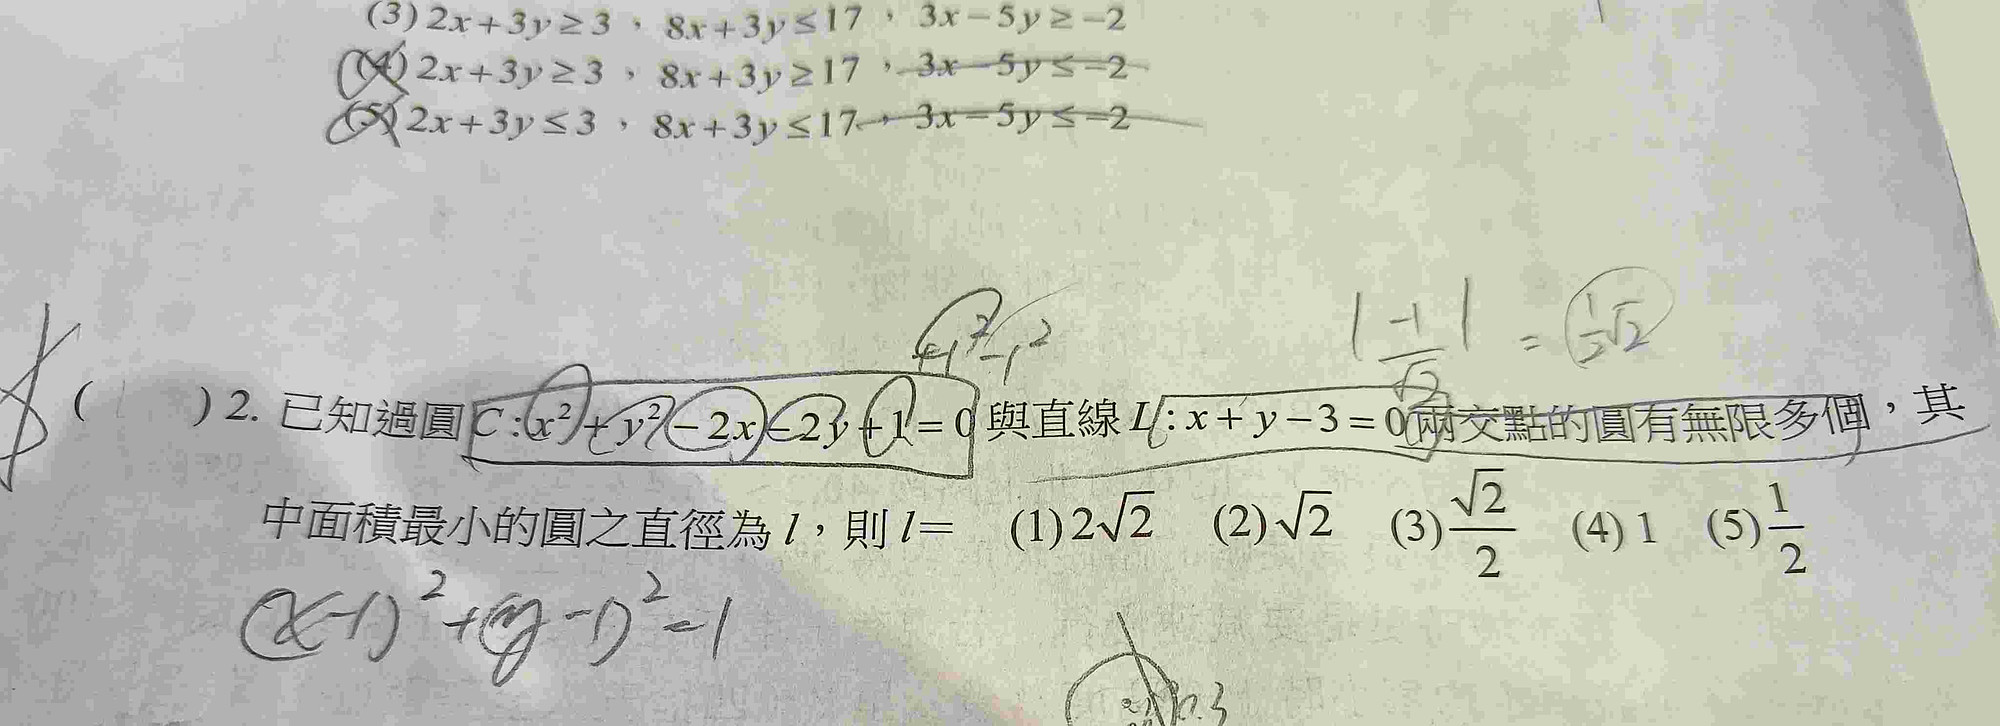 (3) 2x+3y≥3，8x+3y≤17，3x−5y≥−2
(4) 2x+3y≥3，8x+3y≥17，3x−5y≤−2
(5) 2x+3y≤3，8x+3y≤17，3x−5y≤−2
|−1/√2| = 1/2√2
( ) 2. 已知過圓 C : x²+y²−2x−2y+1=0 與直線 L : x+y−3=0 兩交點的圓有無限多個，其
中面積最小的圓之直徑為 l，則 l= (1) 2√2 (2) √2 (3) √2/2 (4) 1 (5) 1/2
(x−1)²+(y−1)²=1